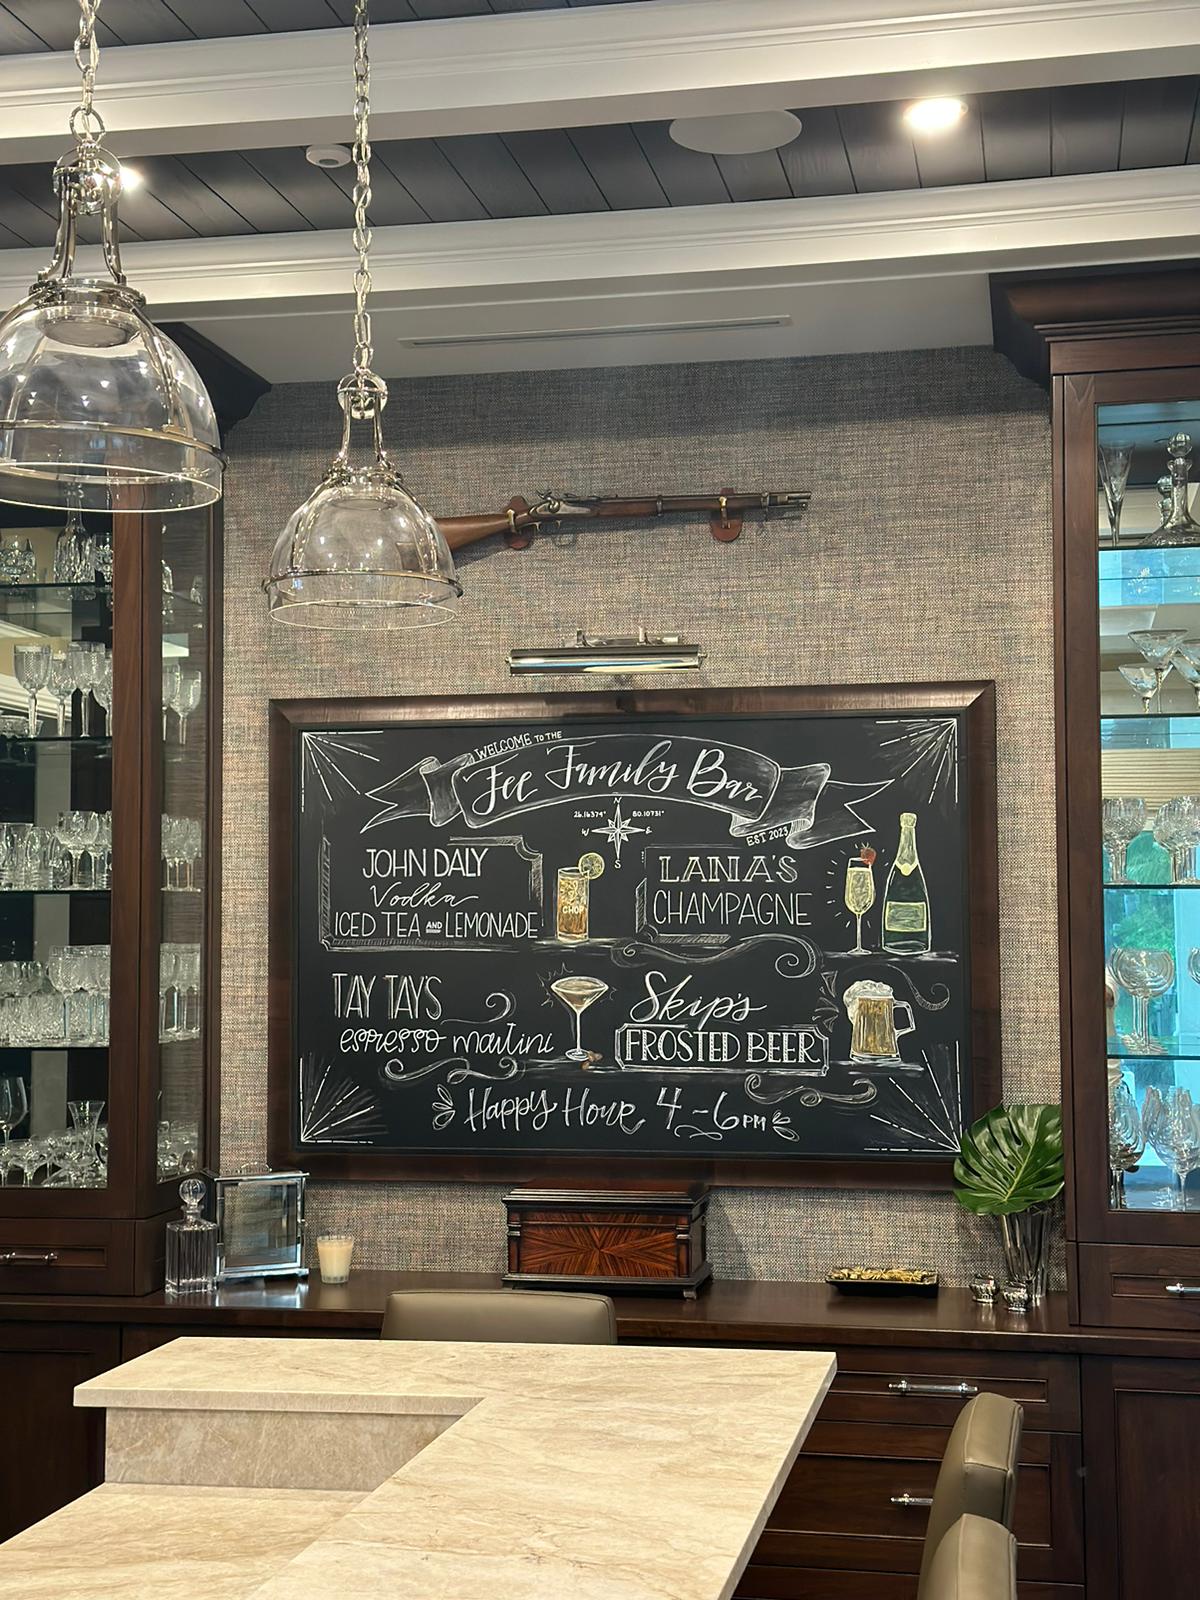 WELCOME TO THE
Fee Family Bar
EST 2023
N
26.16374° 80.10731°
W E
S
JOHN DALY
Vodka
ICED TEA AND LEMONADE
CHOP
LANIA'S
CHAMPAGNE
TAY TAY'S
espresso martini
Skip's
FROSTED BEER
Happy Hour 4-6PM